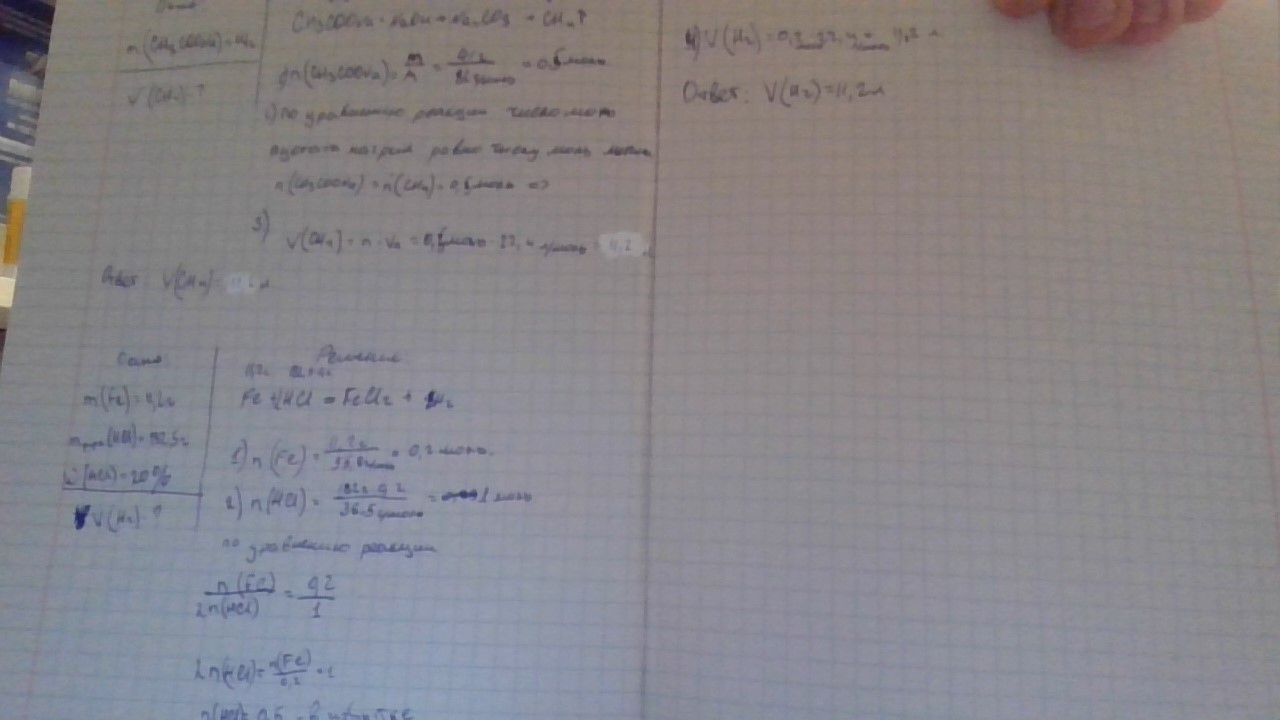 Дано
m(CH3COONa)=41г
V(CH4)-?
CH3COONa+NaOH=Na2CO3 + CH4↑
1) n(CH3COONa)= m/M = = 0,5 моль
2) по уравнению реакции число моль
ацетата натрия равно числу моль метана
n(CH3COONa)=n(CH4)=0,5 моль =>
3)
V(CH4)= n · Vm =0,5 моль · 22,4 л/моль = 11,2 л
Ответ: V(CH4)=11,2 л
Дано
m(Fe)=11,2г
mр-ра(HCl)=182,5г
ω(HCl)=20%
V(H2)-?
Решение
Fe+2HCl = FeCl2 + H2
1) n(Fe)= = 0,2 моль.
2) n(HCl)= = 1 моль
по уравнению реакции
n(Fe)/2n(HCl) = 0,2/1
2n(HCl)= n(Fe)/0,2 = 1
n(HCl)= 0,5 - в избытке
4) V(H2)= 11,2 л
Ответ: V(H2)=11,2л